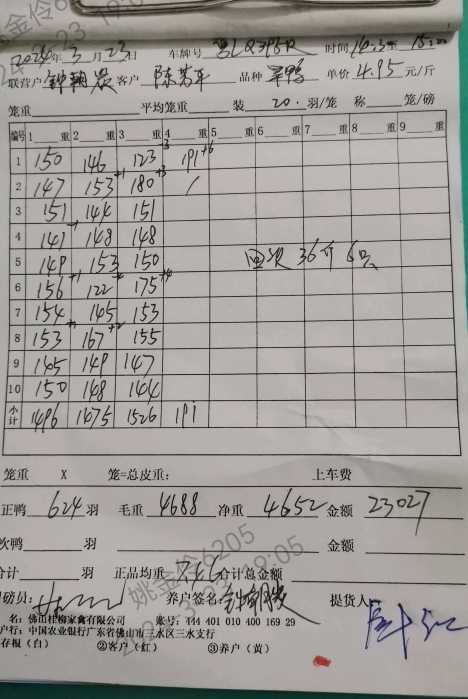 2024年3月23日 车牌号 时间
联营户 客户 品种 单价4.95元/斤
笼重 平均笼重 装20.羽/笼 称 笼/磅
编号 1 重 2 重 3 重 4 重 5 重 6 重 7 重 8 重 9 重
1 150 146 123 +3 191 +6
2 147 153 +1 180 +3 /
3 151 144 151
4 141 148 148
5 149 153 150
6 156 +1 122 175 +4
7 154 145 153
8 153 +1 167 +2 155
9 145 149 147
10 150 148 144
小计 1496 1475 1526 191
回次 36斤 6只
笼重 X 笼=总皮重: 上车费
正鸭 624 羽 毛重 4688 净重 4652 金额 23027
次鸭 羽 金额
合计 羽 正品均重 7.46 合计总金额
司磅员: 养户签名: 提货人:
名: 佛山桂柳家禽有限公司 账号: 444 401 010 400 169 29
户行: 中国农业银行广东省佛山市三水区三水支行
存根(白) ②客户(红) ③养户(黄)
姚金伶6205
18:05